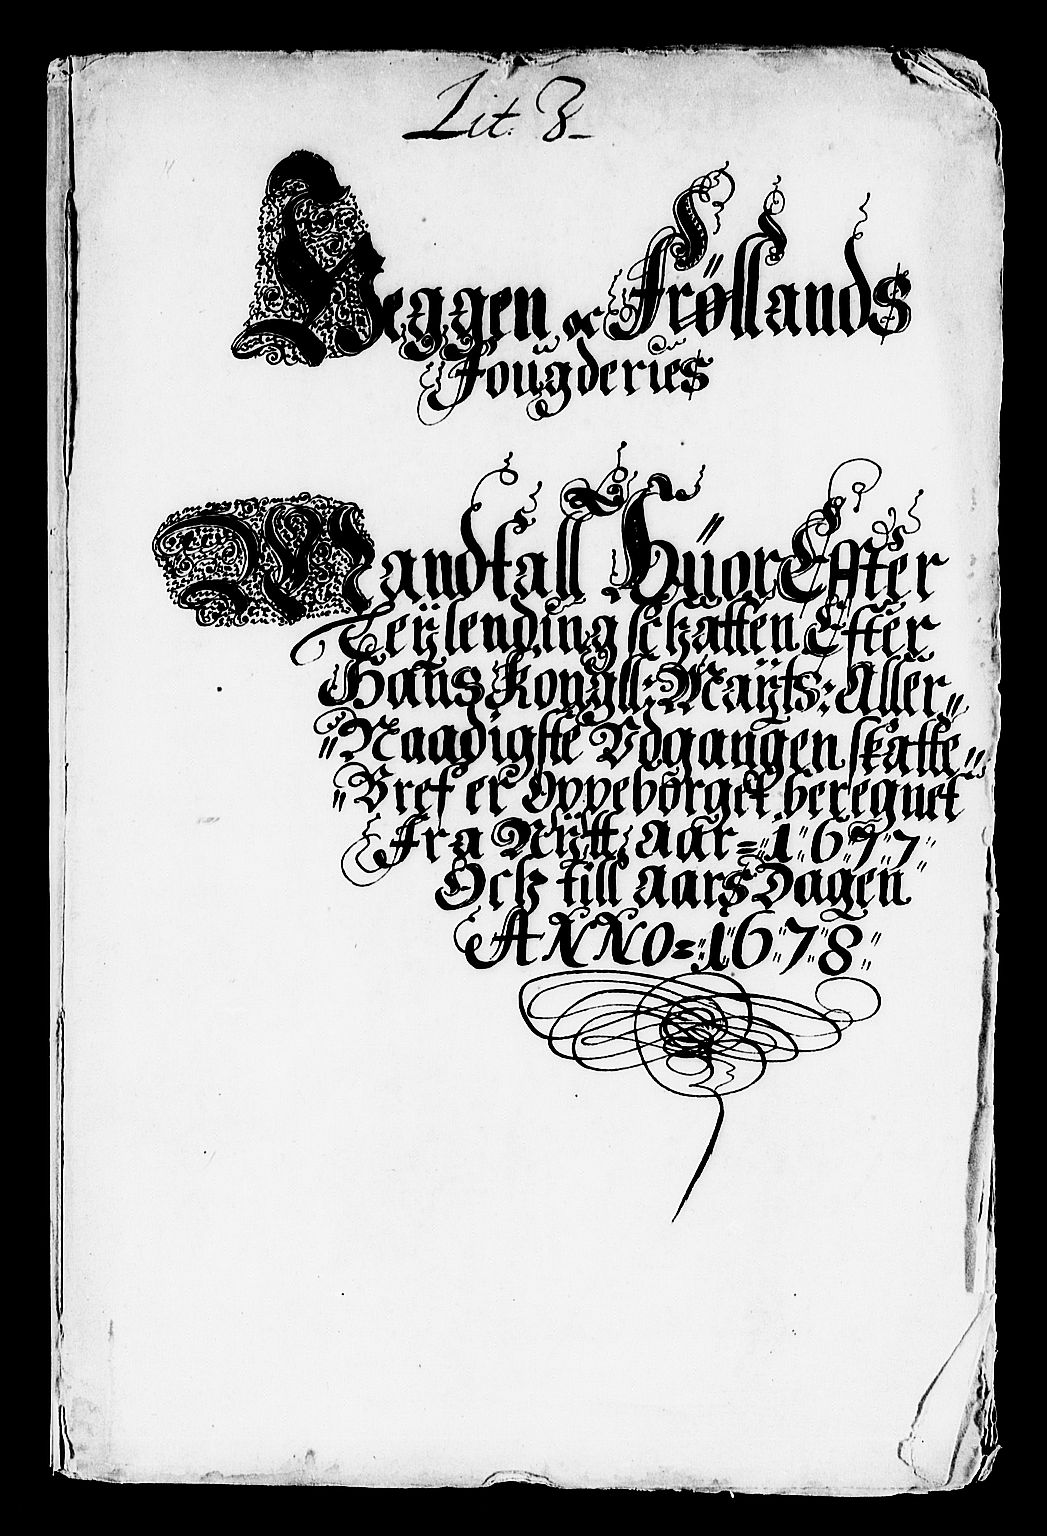 Lit. B
Heggen oc Frøllands
Fougderies
Mandtall Huor Effter
Leÿlending schatten Efter
Hans Kongll: Maÿts: Aller„
„Naadigste Vdgangen skatte„
„Bref er Oppebørget beregnet
Fra Nÿtt, aar = 1677
Och till aars Dagen
ANNO = 1678